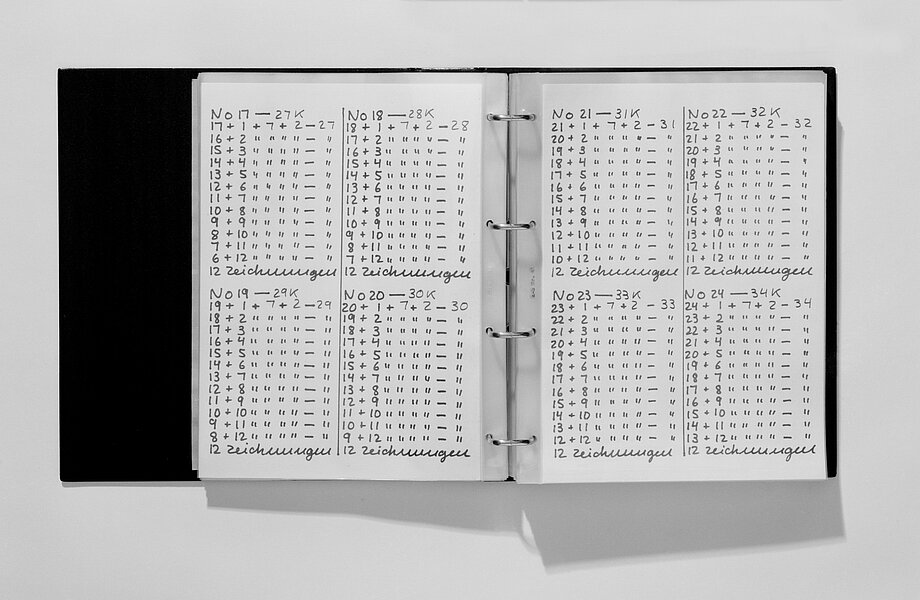 No 17 — 27K
17 + 1 + 7 + 2 — 27
16 + 2 " " " " — "
15 + 3 " " " " — "
14 + 4 " " " " — "
13 + 5 " " " " — "
12 + 6 " " " " — "
11 + 7 " " " " — "
10 + 8 " " " " — "
9 + 9 " " " " — "
8 + 10 " " " " — "
7 + 11 " " " " — "
6 + 12 " " " " — "
12 Zeichnungen
No 18 — 28K
18 + 1 + 7 + 2 — 28
17 + 2 " " " " — "
16 + 3 " " " " — "
15 + 4 " " " " — "
14 + 5 " " " " — "
13 + 6 " " " " — "
12 + 7 " " " " — "
11 + 8 " " " " — "
10 + 9 " " " " — "
9 + 10 " " " " — "
8 + 11 " " " " — "
7 + 12 " " " " — "
12 Zeichnungen
No 19 — 29K
19 + 1 + 7 + 2 — 29
18 + 2 " " " " — "
17 + 3 " " " " — "
16 + 4 " " " " — "
15 + 5 " " " " — "
14 + 6 " " " " — "
13 + 7 " " " " — "
12 + 8 " " " " — "
11 + 9 " " " " — "
10 + 10 " " " " — "
9 + 11 " " " " — "
8 + 12 " " " " — "
12 Zeichnungen
No 20 — 30K
20 + 1 + 7 + 2 — 30
19 + 2 " " " " — "
18 + 3 " " " " — "
17 + 4 " " " " — "
16 + 5 " " " " — "
15 + 6 " " " " — "
14 + 7 " " " " — "
13 + 8 " " " " — "
12 + 9 " " " " — "
11 + 10 " " " " — "
10 + 11 " " " " — "
9 + 12 " " " " — "
12 Zeichnungen
No 21 — 31K
21 + 1 + 7 + 2 — 31
20 + 2 " " " " — "
19 + 3 " " " " — "
18 + 4 " " " " — "
17 + 5 " " " " — "
16 + 6 " " " " — "
15 + 7 " " " " — "
14 + 8 " " " " — "
13 + 9 " " " " — "
12 + 10 " " " " — "
11 + 11 " " " " — "
10 + 12 " " " " — "
12 Zeichnungen
No 22 — 32K
22 + 1 + 7 + 2 — 32
21 + 2 " " " " — "
20 + 3 " " " " — "
19 + 4 " " " " — "
18 + 5 " " " " — "
17 + 6 " " " " — "
16 + 7 " " " " — "
15 + 8 " " " " — "
14 + 9 " " " " — "
13 + 10 " " " " — "
12 + 11 " " " " — "
11 + 12 " " " " — "
12 Zeichnungen
No 23 — 33K
23 + 1 + 7 + 2 — 33
22 + 2 " " " " — "
21 + 3 " " " " — "
20 + 4 " " " " — "
19 + 5 " " " " — "
18 + 6 " " " " — "
17 + 7 " " " " — "
16 + 8 " " " " — "
15 + 9 " " " " — "
14 + 10 " " " " — "
13 + 11 " " " " — "
12 + 12 " " " " — "
12 Zeichnungen
No 24 — 34K
24 + 1 + 7 + 2 — 34
23 + 2 " " " " — "
22 + 3 " " " " — "
21 + 4 " " " " — "
20 + 5 " " " " — "
19 + 6 " " " " — "
18 + 7 " " " " — "
17 + 8 " " " " — "
16 + 9 " " " " — "
15 + 10 " " " " — "
14 + 11 " " " " — "
13 + 12 " " " " — "
12 Zeichnungen